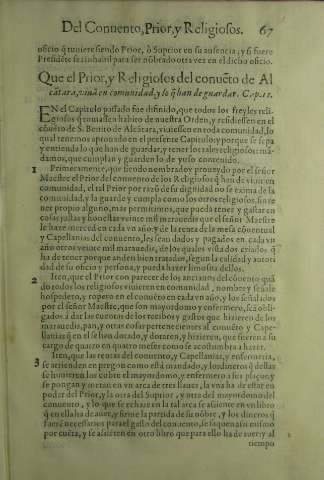 Del Conuento, Prior, y Religiosos. 67
oficio q̃ tuuiere siendo Prior, ò Suprior en su ausencia, y si fuere
Presidẽte sea inhabil para ser nõbrado otra vez en el dicho oficio.
Que el Prior, y Religiosos del conuẽto de Al
cãtara, viuã en comunidad, y lo q̃ han de guardar. C.p.11.
EN el Capitulo passado fue difinido, que todos los freyles reli-
giosos q̃ tomassen habito de nuestra Orden, y residiessen en el
cõuẽto de S. Benito de Alcãtara, viuiessen en toda comunidad, lo
qual tenemos aprouado en el presente Capitulo, y porque se sepa
y entienda lo que han de guardar, y tener los tales religiosos: mã-
damos, que cumplan y guarden lo de yuso contenido.
1 Primeramente, que siendo nombrado y proueydo por el señor
Maestre el Prior del conuento de los Religiosos q̃ han de viuir en
comunidad, el tal Prior por razõ de su dignidad no se exima de la
comunidad, y la guarde y cumpla como los otros religiosos, sin te
ner proprio alguno, mas permitimos, que pueda tener y gastar en
cosas justas y honestas veinte mil marauedis que el señor Maestre
se haze merced en cada vn año, y de la renta de la mesa cõuentual
y Capellanias del conuento, les sean dados y pagados en cada vn
año otros veinte mil marauedis, de los quales vista dos criados q̃
ha de tener porque anden bien tratados, segun la calidad y autori
dad de su oficio y persona, y pueda hazer limosna dellos.
2 Iten, que el Prior con parecer de los ancianos del cõuento, quã
do todos los religiosos viuieren en comunidad, nombre y señale
hospedero, y ropero en el conuẽto en cada vn año, y los señalados
por el señor Maestre, que son mayordomo y enfermero, seã obli-
gados à dar las cuentas de los recibos y gastos que hizieren de los
marauedis, pan, y otras cosas pertenecientes al conuẽto y Cape-
llanias q̃ en el se han dotado, y dotaren, y hizieren, que fueren à su
cargo de quatro en quatro meses como se acostumbra hazer.
3 Iten, que las rentas del conuento, y Capellanias, y enfermeria,
se arrienden en pregon como està mandado, y los dineros q̃ dellas
se huuieren los cobre el mayordomo, y enfermero à sus plaços, y
se pongan y metan en vn arca de tres llaues, la vna ha de estar en
poder del Prior, y la otra del Suprior, y otra del mayordomo del
conuento, y lo que se echare en la tal arca se assiente en vn libro
q̃ en ella ha de auer, y firme la partida de su nõbre, y los dineros q̃
fuerẽ necessarios para el gasto del conuento, se saquen assi mismo
por cuẽta, y se assienten en otro libro que para ello ha de auer, y al
tiempo